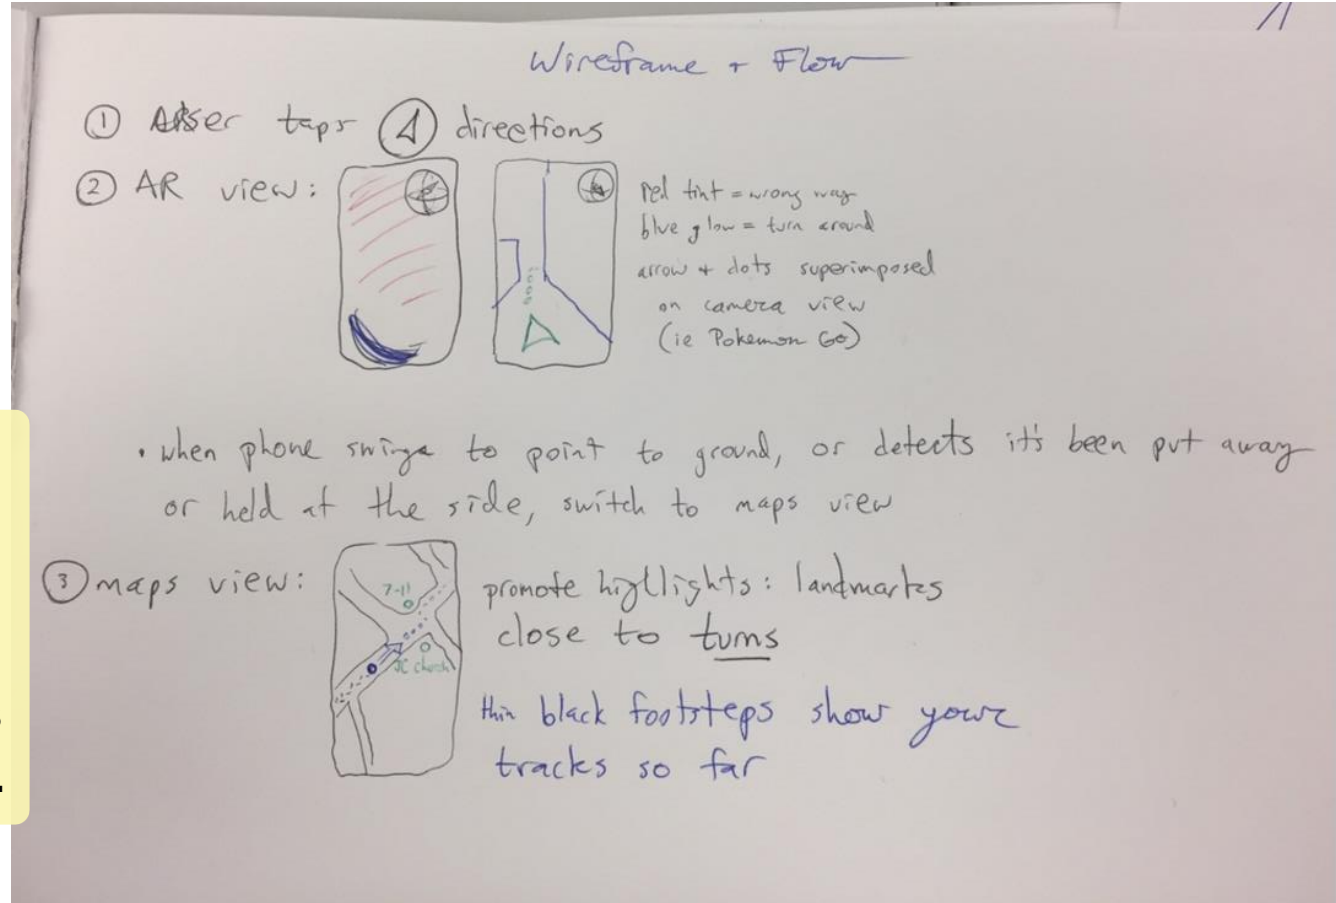 Wireframe + Flow
① User taps directions
② AR view:
red tint = wrong way
blue glow = turn around
arrow + dots superimposed
on camera view
(ie Pokemon Go)
• when phone swings to point to ground, or detects it's been put away
or held at the side, switch to maps view
③ maps view:
7-11
JC church
promote highlights: landmarks
close to turns
thin black footsteps show your
tracks so far